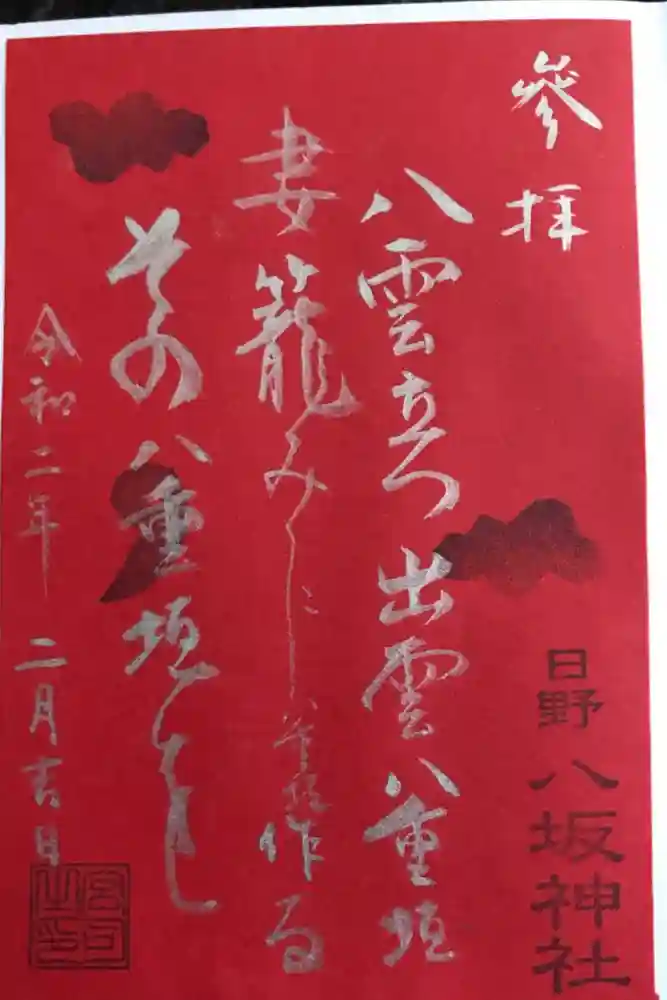 參拝
日野
八坂神社
八雲立つ出雲八重垣
妻籠みに八重垣作る
その八重垣を
令和二年 二月吉日
宮司之印